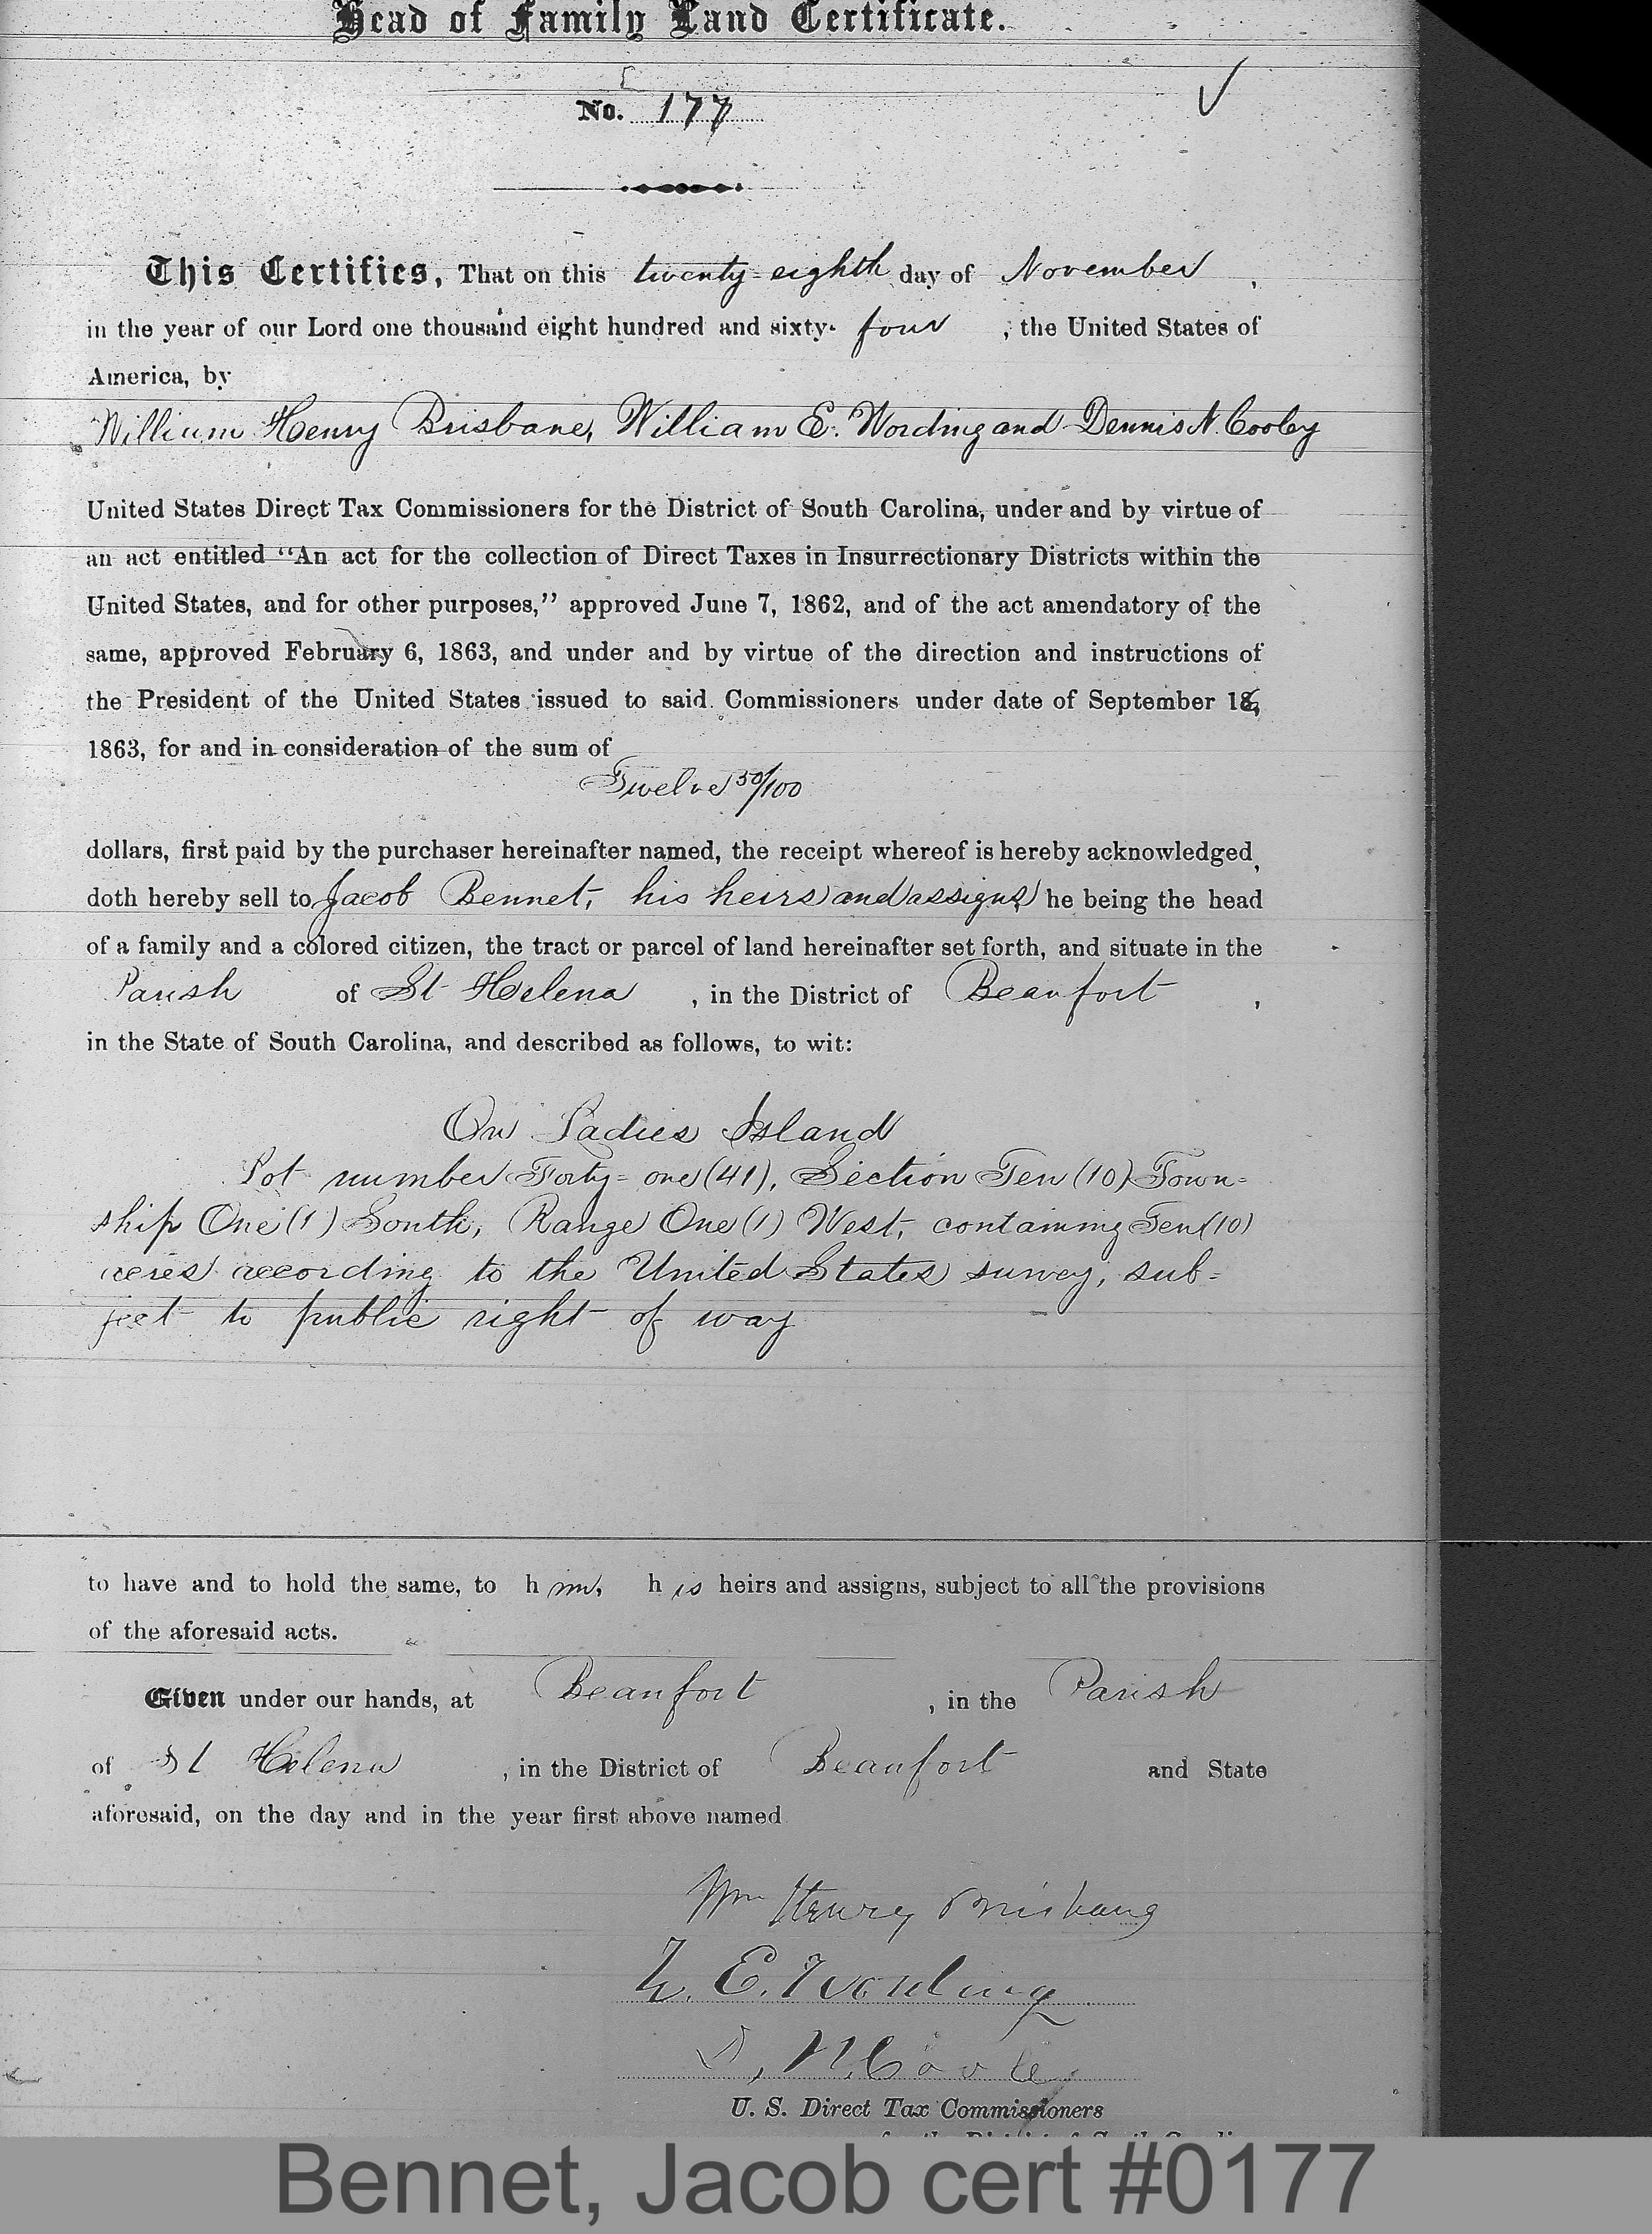 Head of Family Land Certificate.
No. 177
This Certifies, That on this twenty-eighth day of November,
in the year of our Lord one thousand eight hundred and sixty-four, the United States of
America, by
William Henry Brisbane, William E. Wording and Dennis N. Cooley
United States Direct Tax Commissioners for the District of South Carolina, under and by virtue of
an act entitled "An act for the collection of Direct Taxes in Insurrectionary Districts within the
United States, and for other purposes," approved June 7, 1862, and of the act amendatory of the
same, approved February 6, 1863, and under and by virtue of the direction and instructions of
the President of the United States issued to said Commissioners under date of September 16,
1863, for and in consideration of the sum of
Twelve 50/100
dollars, first paid by the purchaser hereinafter named, the receipt whereof is hereby acknowledged,
doth hereby sell to Jacob Bennet, his heirs and assigns, he being the head
of a family and a colored citizen, the tract or parcel of land hereinafter set forth, and situate in the
Parish of St Helena, in the District of Beaufort,
in the State of South Carolina, and described as follows, to wit:
On Ladies Island
Lot number Forty-one (41), Section Ten (10) Town-
ship One (1) South, Range One (1) West, containing Ten (10)
acres according to the United States survey, sub-
ject to public right of way
to have and to hold the same, to him, his heirs and assigns, subject to all the provisions
of the aforesaid acts.
Given under our hands, at Beaufort, in the Parish
of St Helena, in the District of Beaufort and State
aforesaid, on the day and in the year first above named
Wm Henry Brisbane
W. E. Wording
D. N. Cooley
U. S. Direct Tax Commissioners
Bennet, Jacob cert #0177